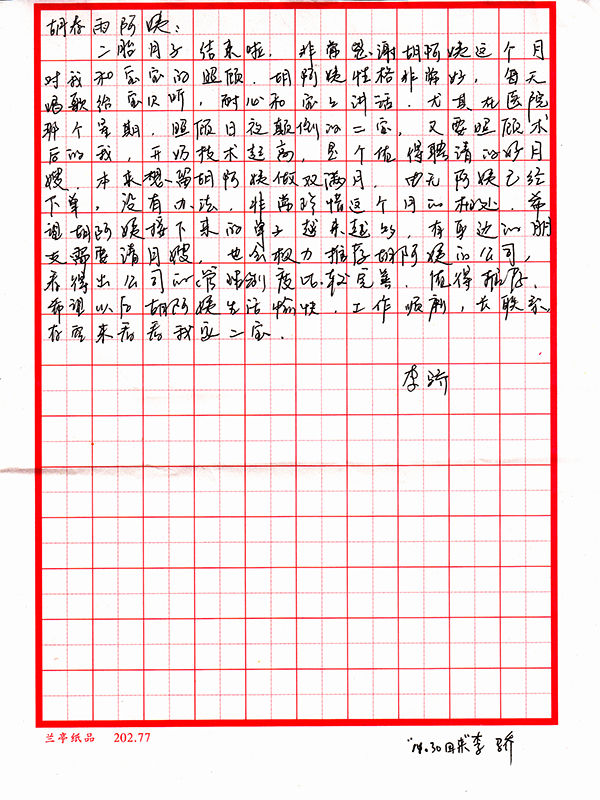 胡存雨阿姨：
二胎月子结束啦，非常感谢胡阿姨这个月
对我和宝宝的照顾，胡阿姨性格非常好，每天
唱歌给宝贝听，耐心和宝宝讲话，尤其在医院
那个星期，照顾日夜颠倒的二宝，又要照顾术
后的我，开奶技术超高，是个值得聘请的好月
嫂，本来想留胡阿姨做双满月，由无阿姨已经
下单，没有办法，非常珍惜这个月的相处，希
望胡阿姨接下来的单子越来越好，有身边的朋
友需要请月嫂，也会极力推荐胡阿姨的公司，
看得出公司的管理制度比较完善，值得推荐。
希望以后胡阿姨生活愉快，工作顺利，长联系
存空来看看我家二宝。
李骄
兰亭纸品 202.77
李骄